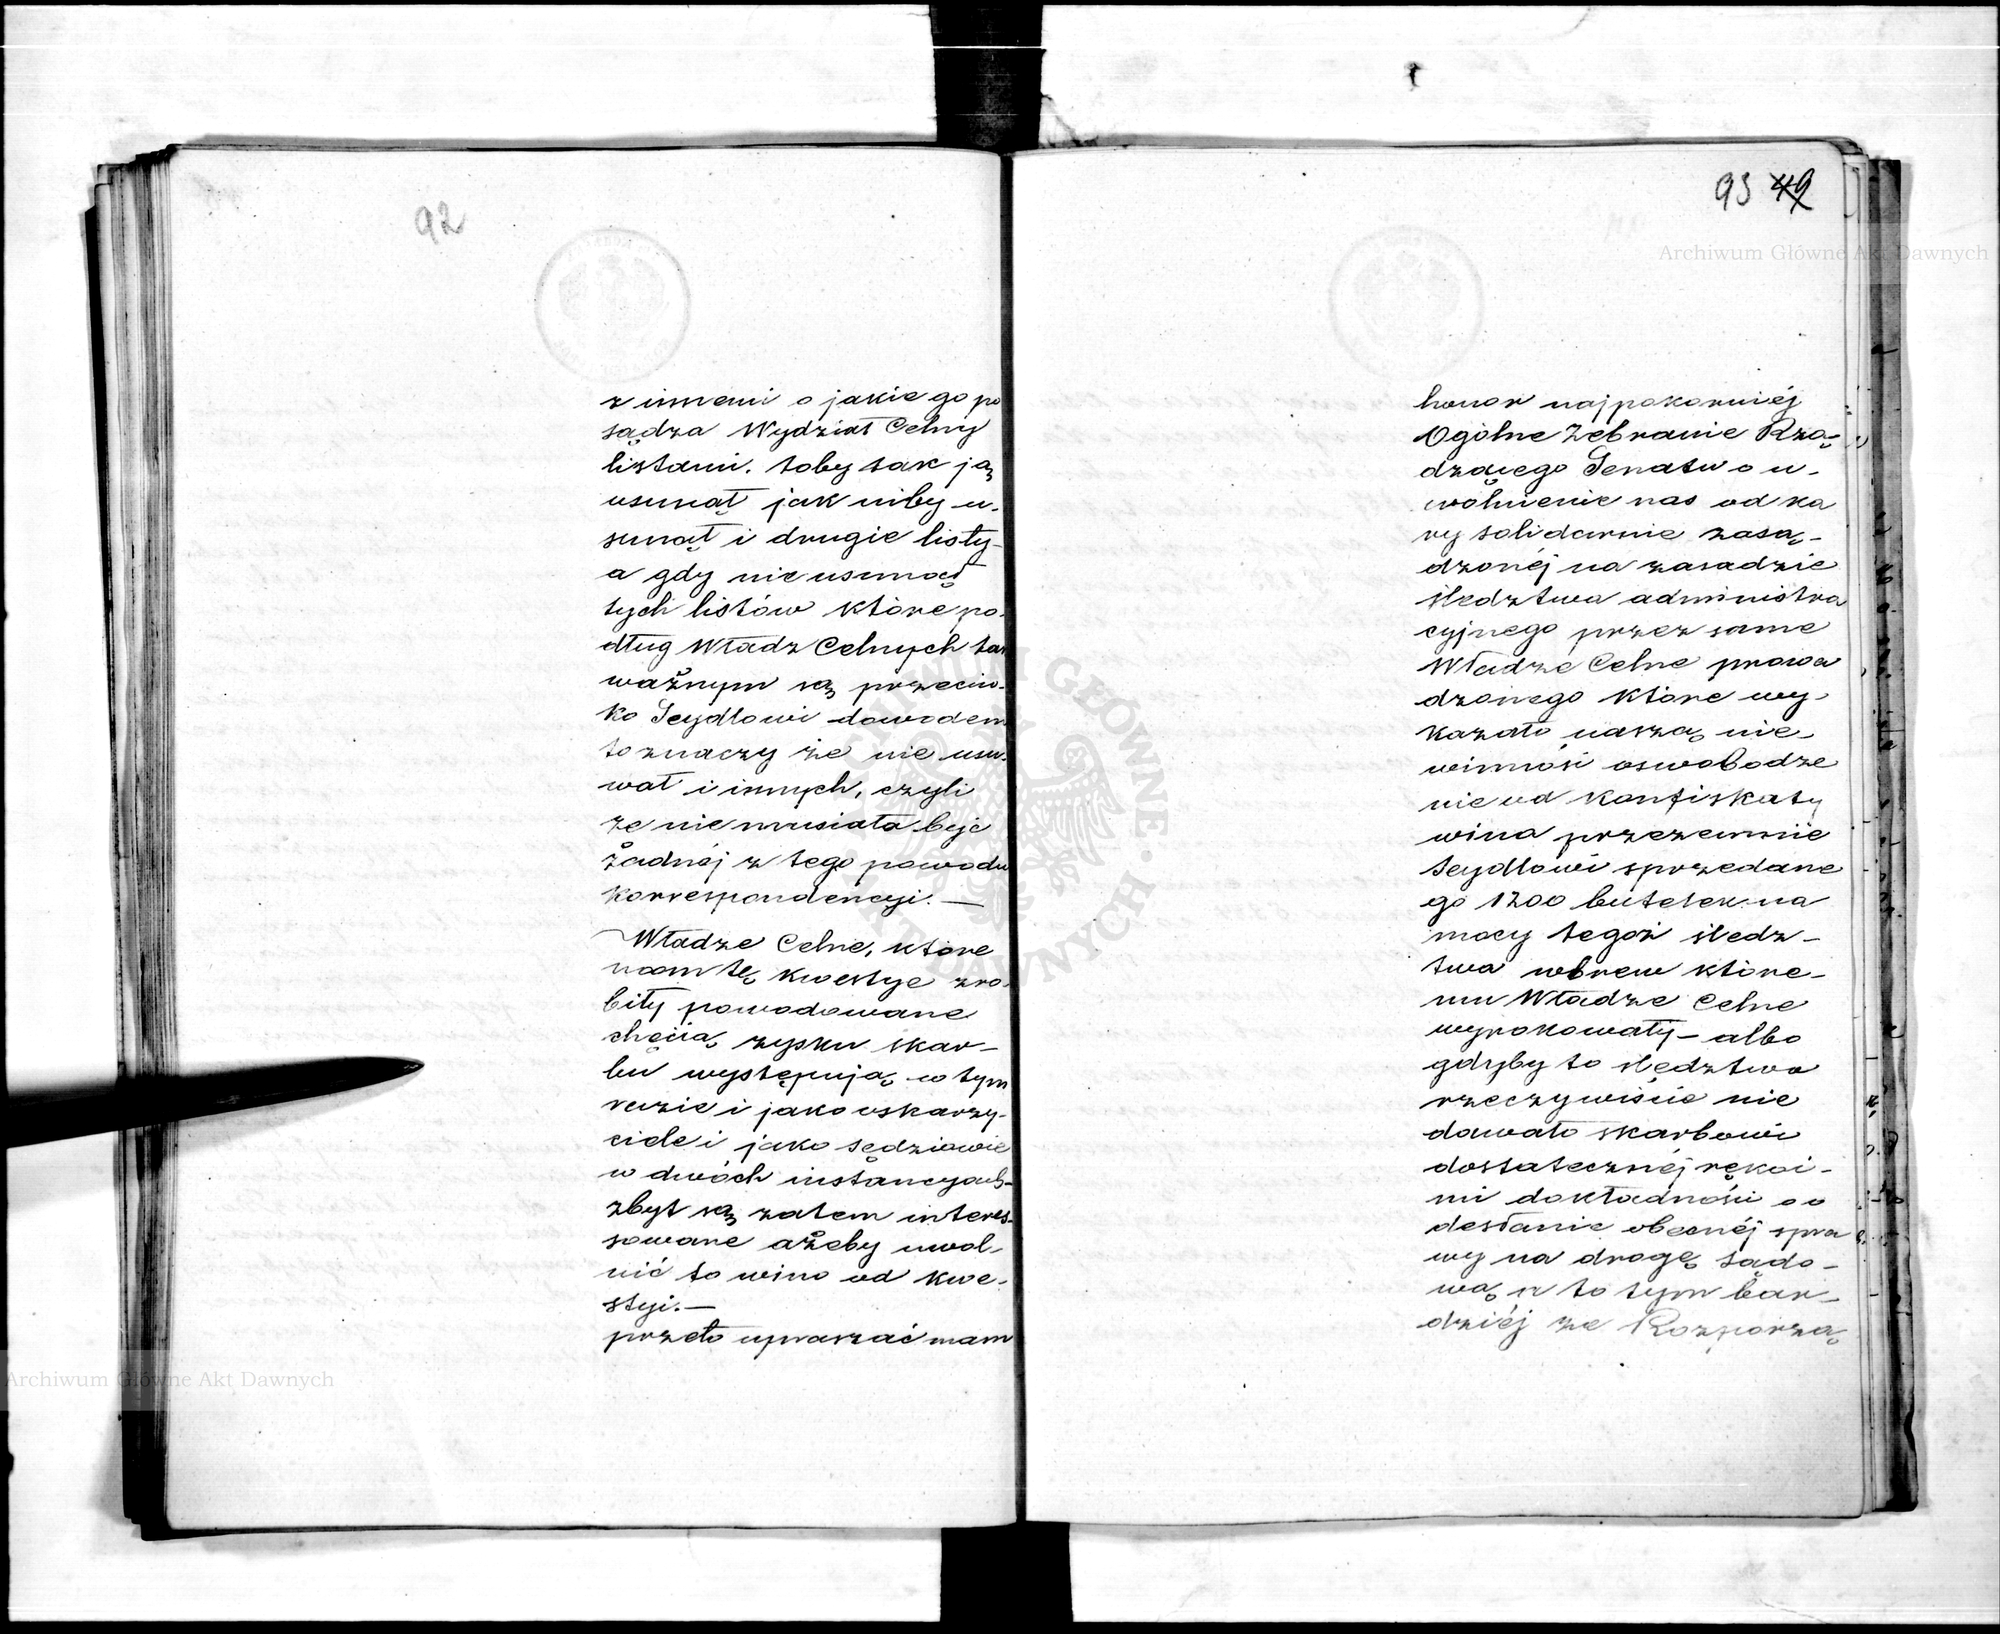 92
z innemi o jakie go po
sądza Wydział Celny
listami. toby tak ją
usunął jak niby u-
sunął i drugie listy-
a gdy nie usunął
tych listów które po-
dług Władz Celnych tak
ważnym są przeciw-
ko Seydlowi dowodem
to znaczy że nie usu-
wał i innych, czyli
że nie musiała być
żadnéj z tego powodu
korrespondencyi. —
Władze Celne, które
nam tę kwestye zro-
biły powodowane
chęcią zysku skar-
bu występują w tym
razie i jako oskarzy-
ciele i jako sędziowie
w dwóch instancyach-
zbyt są zatem interes-
sowane ażeby uwol-
nić to wino od kwe-
styi. —
przeto upraszać mam
93 49
honor najpokorniéj
Ogólne Zebranie Rzą-
dzącego Senatu o u-
wolnienie nas od ka
ry solidarnie zasą-
dzonéj na zasadzie
śledztwa administra
cyjnego przez same
Władze Celne prowa
dzonego które wy-
kazało naszą nie-
winność oswobodze
nie od konfiskaty
wina przezemnie
Seydlowi sprzedane
go 1200 butelek na
mocy tegoż śledz-
twa wbrew które-
mu Władze Celne
wyrokowały - albo
gdyby to śledztwo
rzeczywiście nie
dawało skarbowi
dostatecznéj rękoi-
mi dokładności o o
desłanie obecnéj spra
wy na drogę sądo-
wą a to tym bar-
dziéj że Rozporzą
Archiwum Główne Akt Dawnych
Archiwum Główne Akt Dawnych
ARCHIWUM GŁÓWNE AKT DAWNYCH